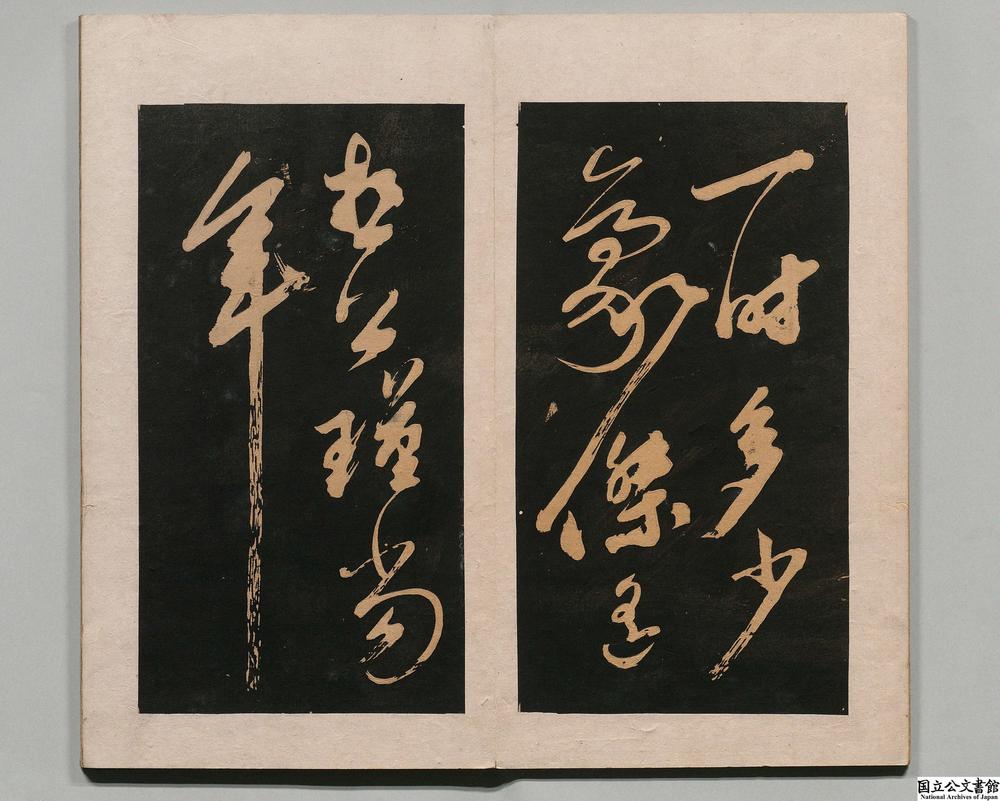 一時多少
豪傑遙
想公瑾當
年
国立公文書館
National Archives of Japan